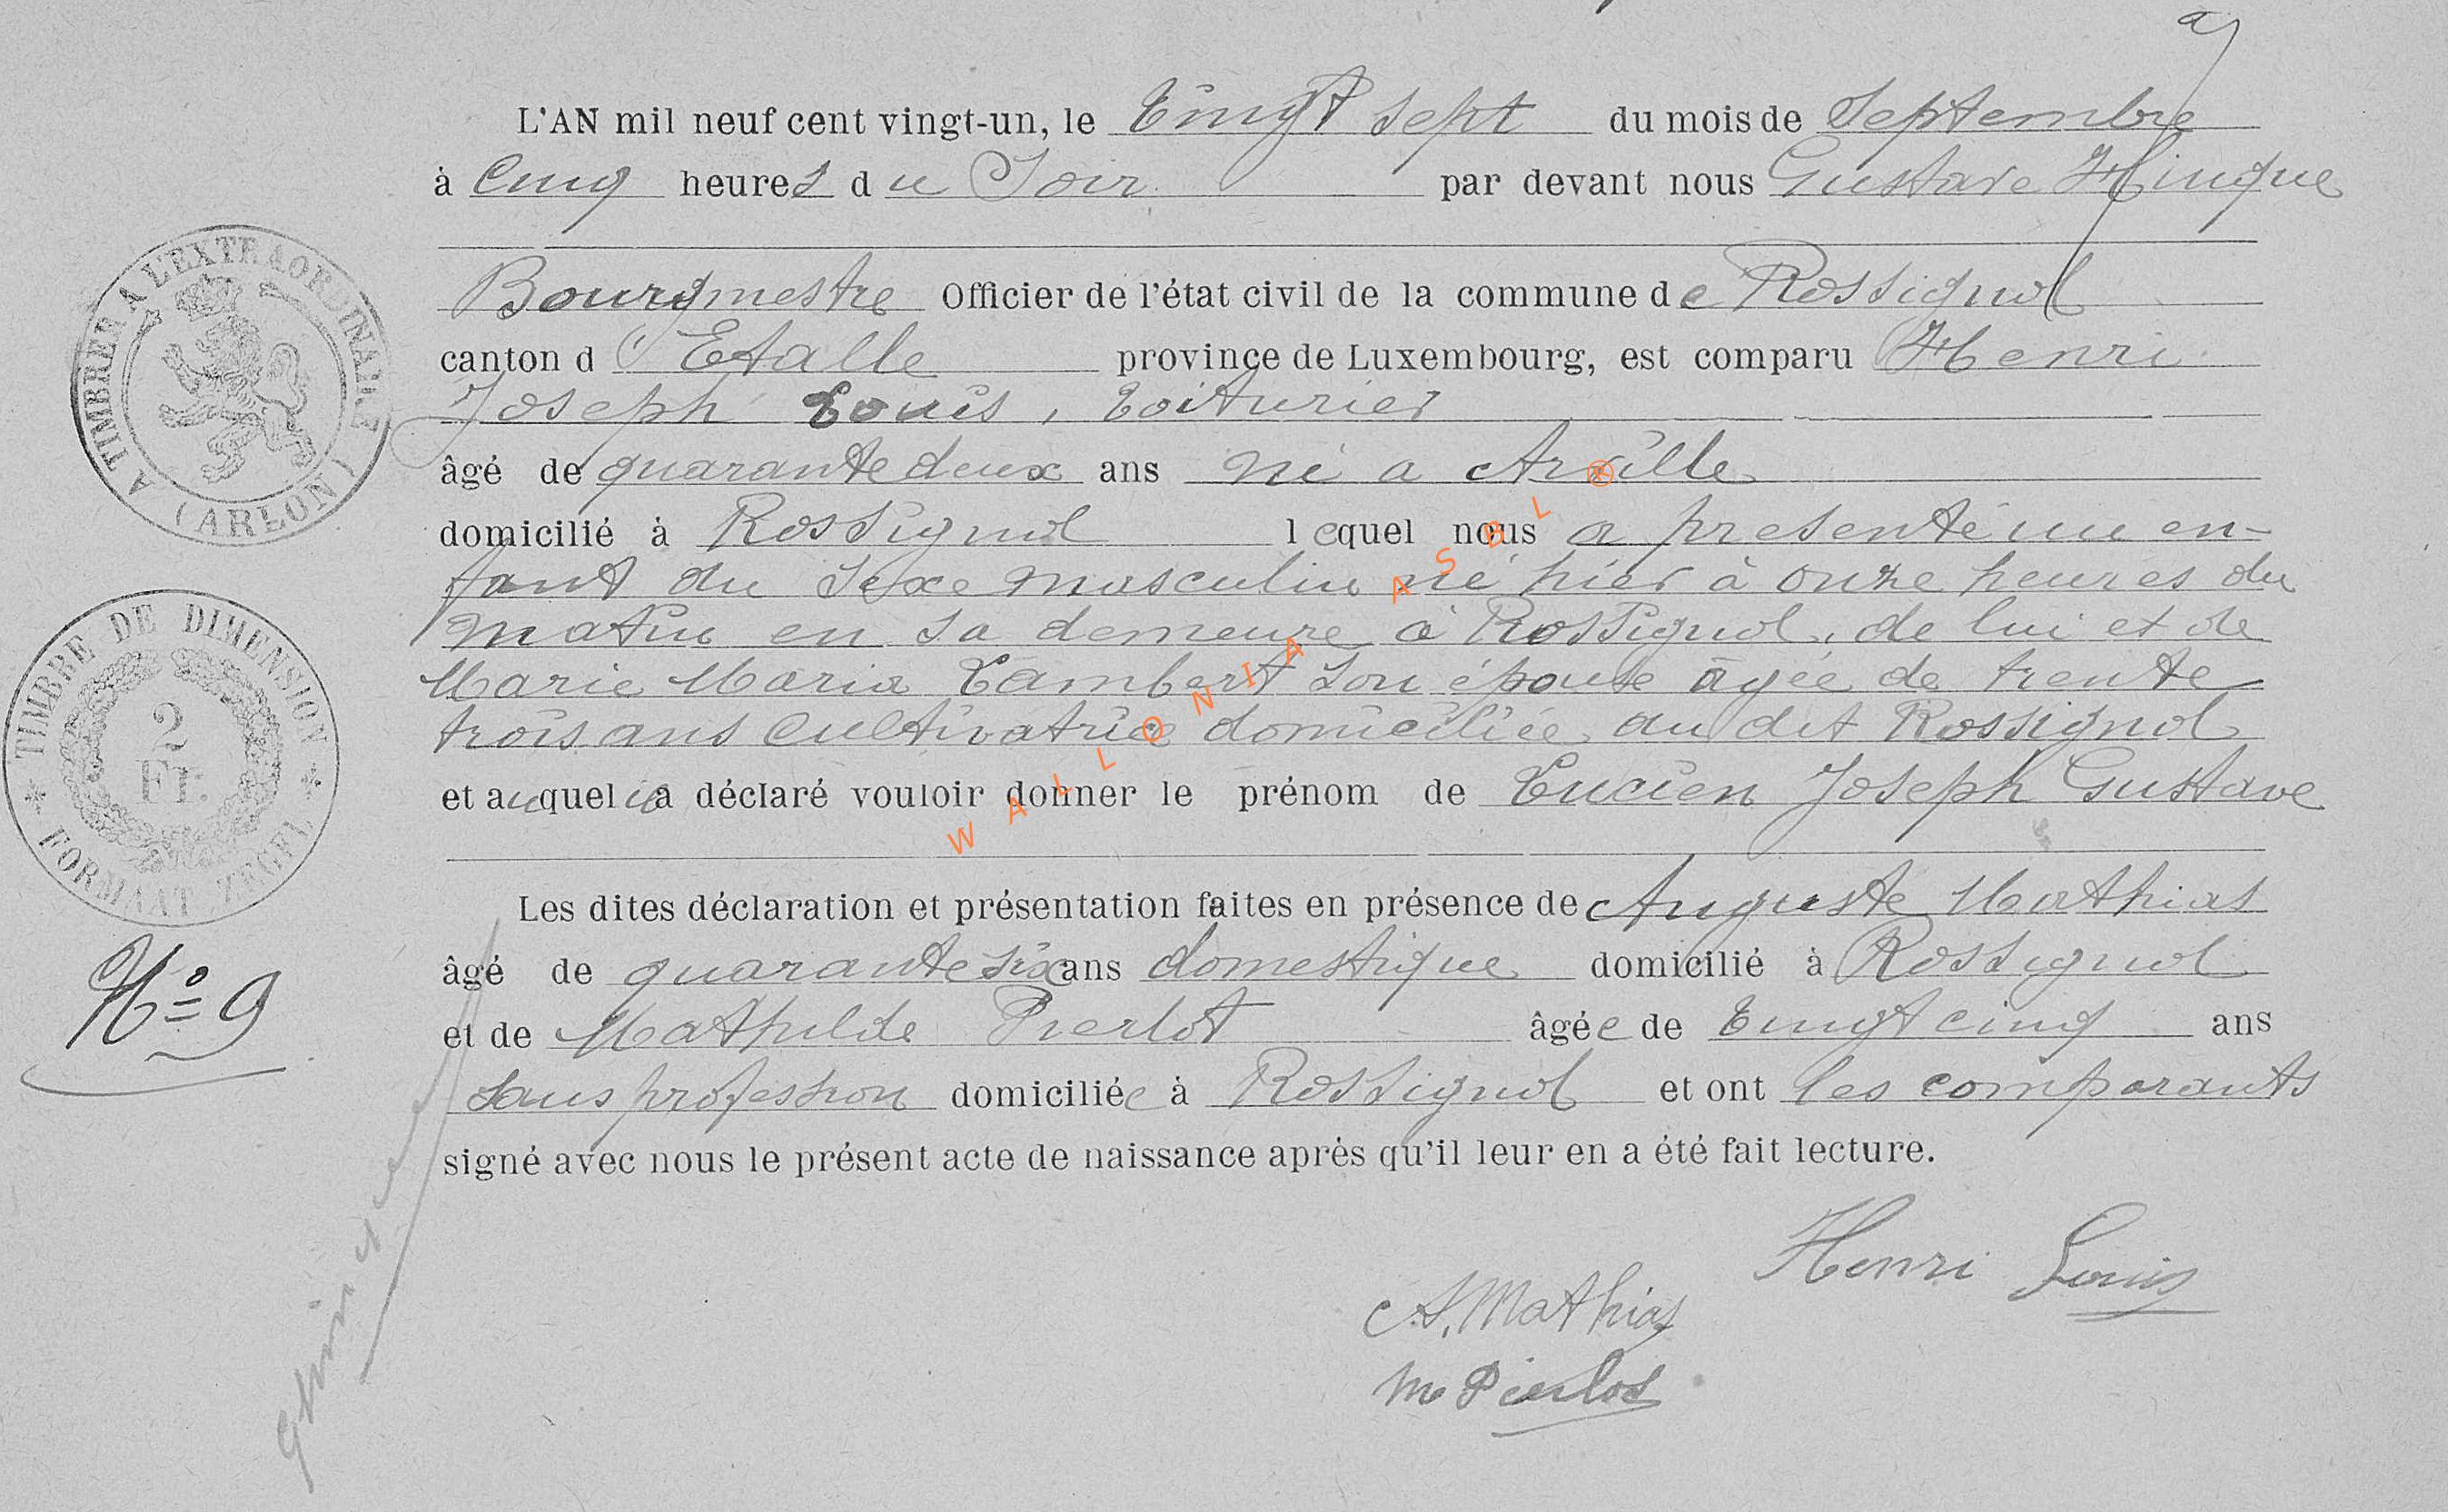 L'AN mil neuf cent vingt-un, le Vingt sept du mois de Septembre
à Cinq heures du Soir par devant nous Gustave Hinque
Bourgmestre Officier de l'état civil de la commune de Rossignol
canton d'Etalle province de Luxembourg, est comparu Henri
Joseph Louis, Voiturier
âgé de quarante deux ans né a Arville
domicilié à Rossignol lequel nous a presenté un en-
fant du sexe masculin né hier à onze heures du
matin en sa demeure à Rossignol, de lui et de
Marie Maria Lambert son épouse âgée de trente
trois ans cultivatrice domiciliée au dit Rossignol
et auquel il a déclaré vouloir donner le prénom de Lucien Joseph Gustave
Les dites déclaration et présentation faites en présence de Auguste Mathias
âgé de quarante six ans domestique domicilié à Rossignol
et de Mathilde Pierlot âgée de Vingt cinq ans
sans profession domiciliée à Rossignol et ont les comparants
signé avec nous le présent acte de naissance après qu'il leur en a été fait lecture.
Henri Louis
A. Mathias
M Pierlot
A TIMBRER A L'EXTRAORDINAIRE
(ARLON)
TIMBRE DE DIMENSION
2
Fr.
FORMAAT ZEGEL
No 9
WALLONIA ASBL ®